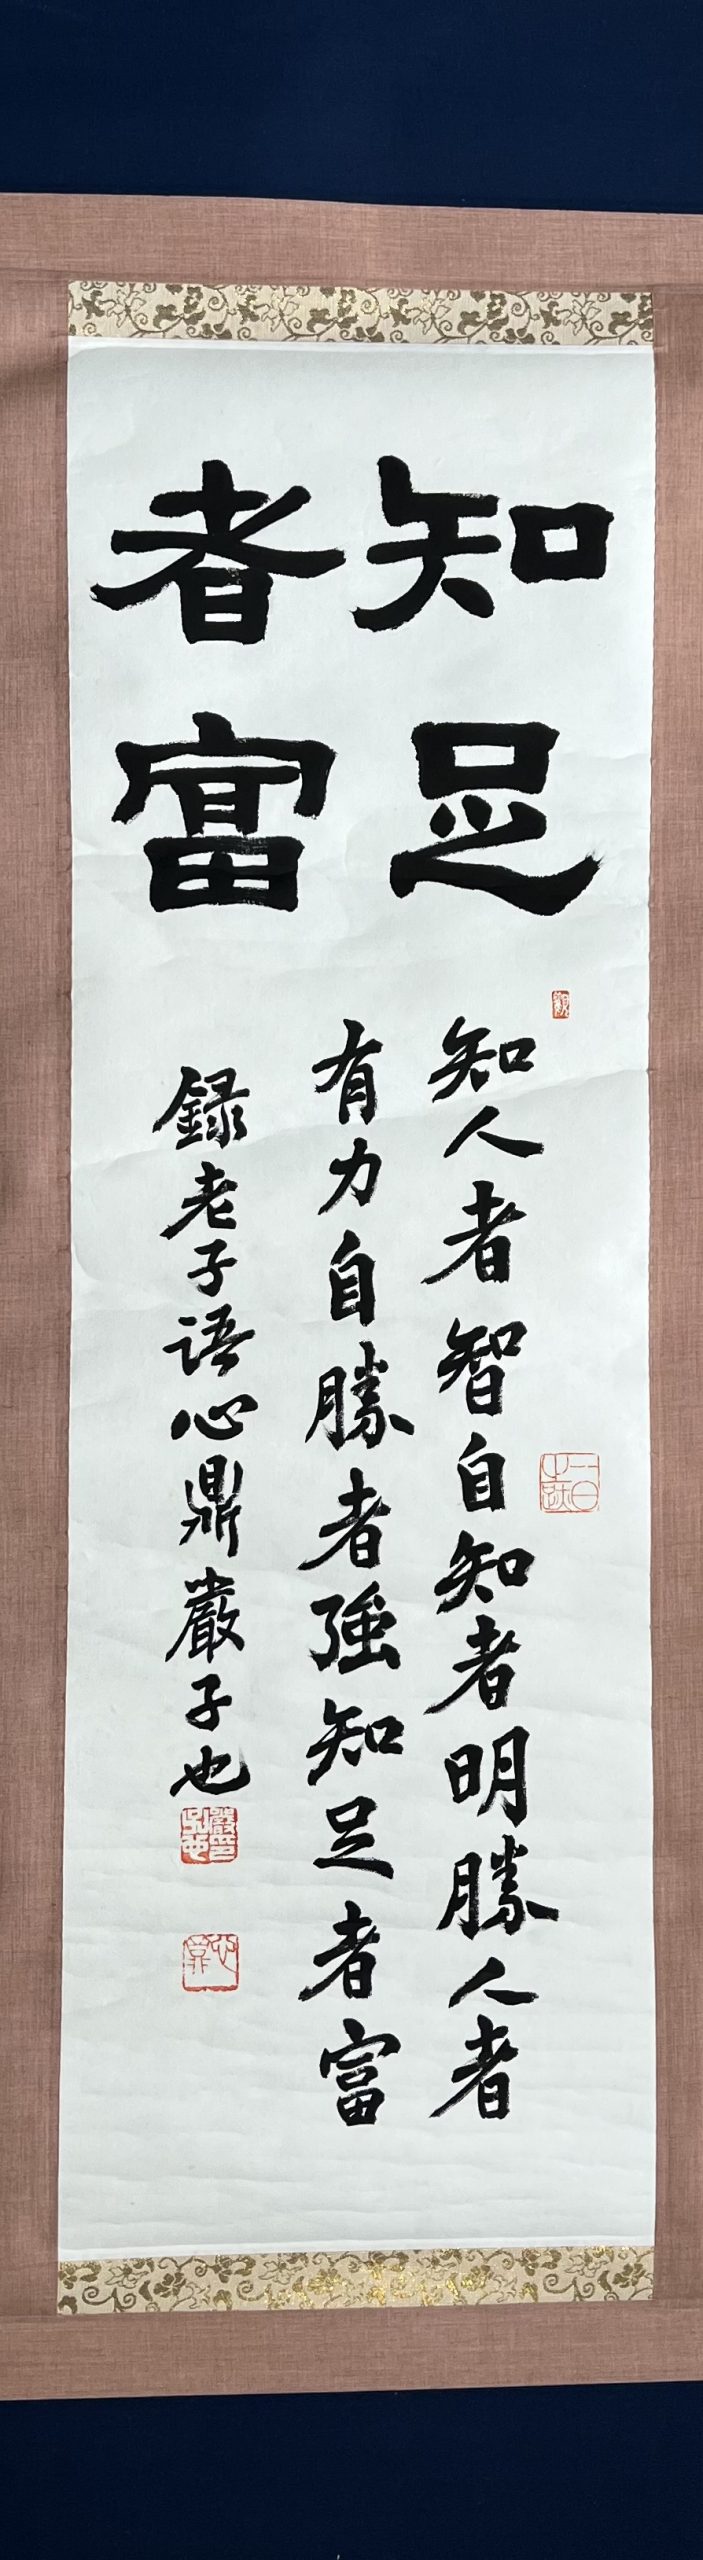 知足
者富
知人者智自知者明勝人者
有力自勝者強知足者富
録老子语心鼎巖子也
一日之跡
心鼎